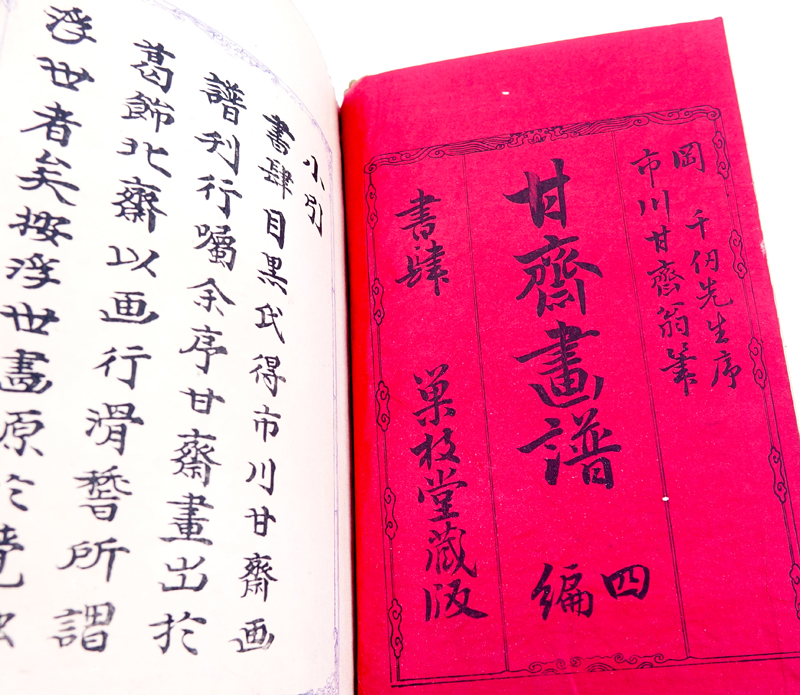 岡 千仞先生序
市川甘齋翁筆
甘齋畫譜
四編
書肆 巣枝堂藏版
小引
書肆目黒氏得市川甘齋画
譜刊行囑余序甘齋畫出於
葛餝北齋以画行滑稽所謂
浮世者矣按浮世畫原於